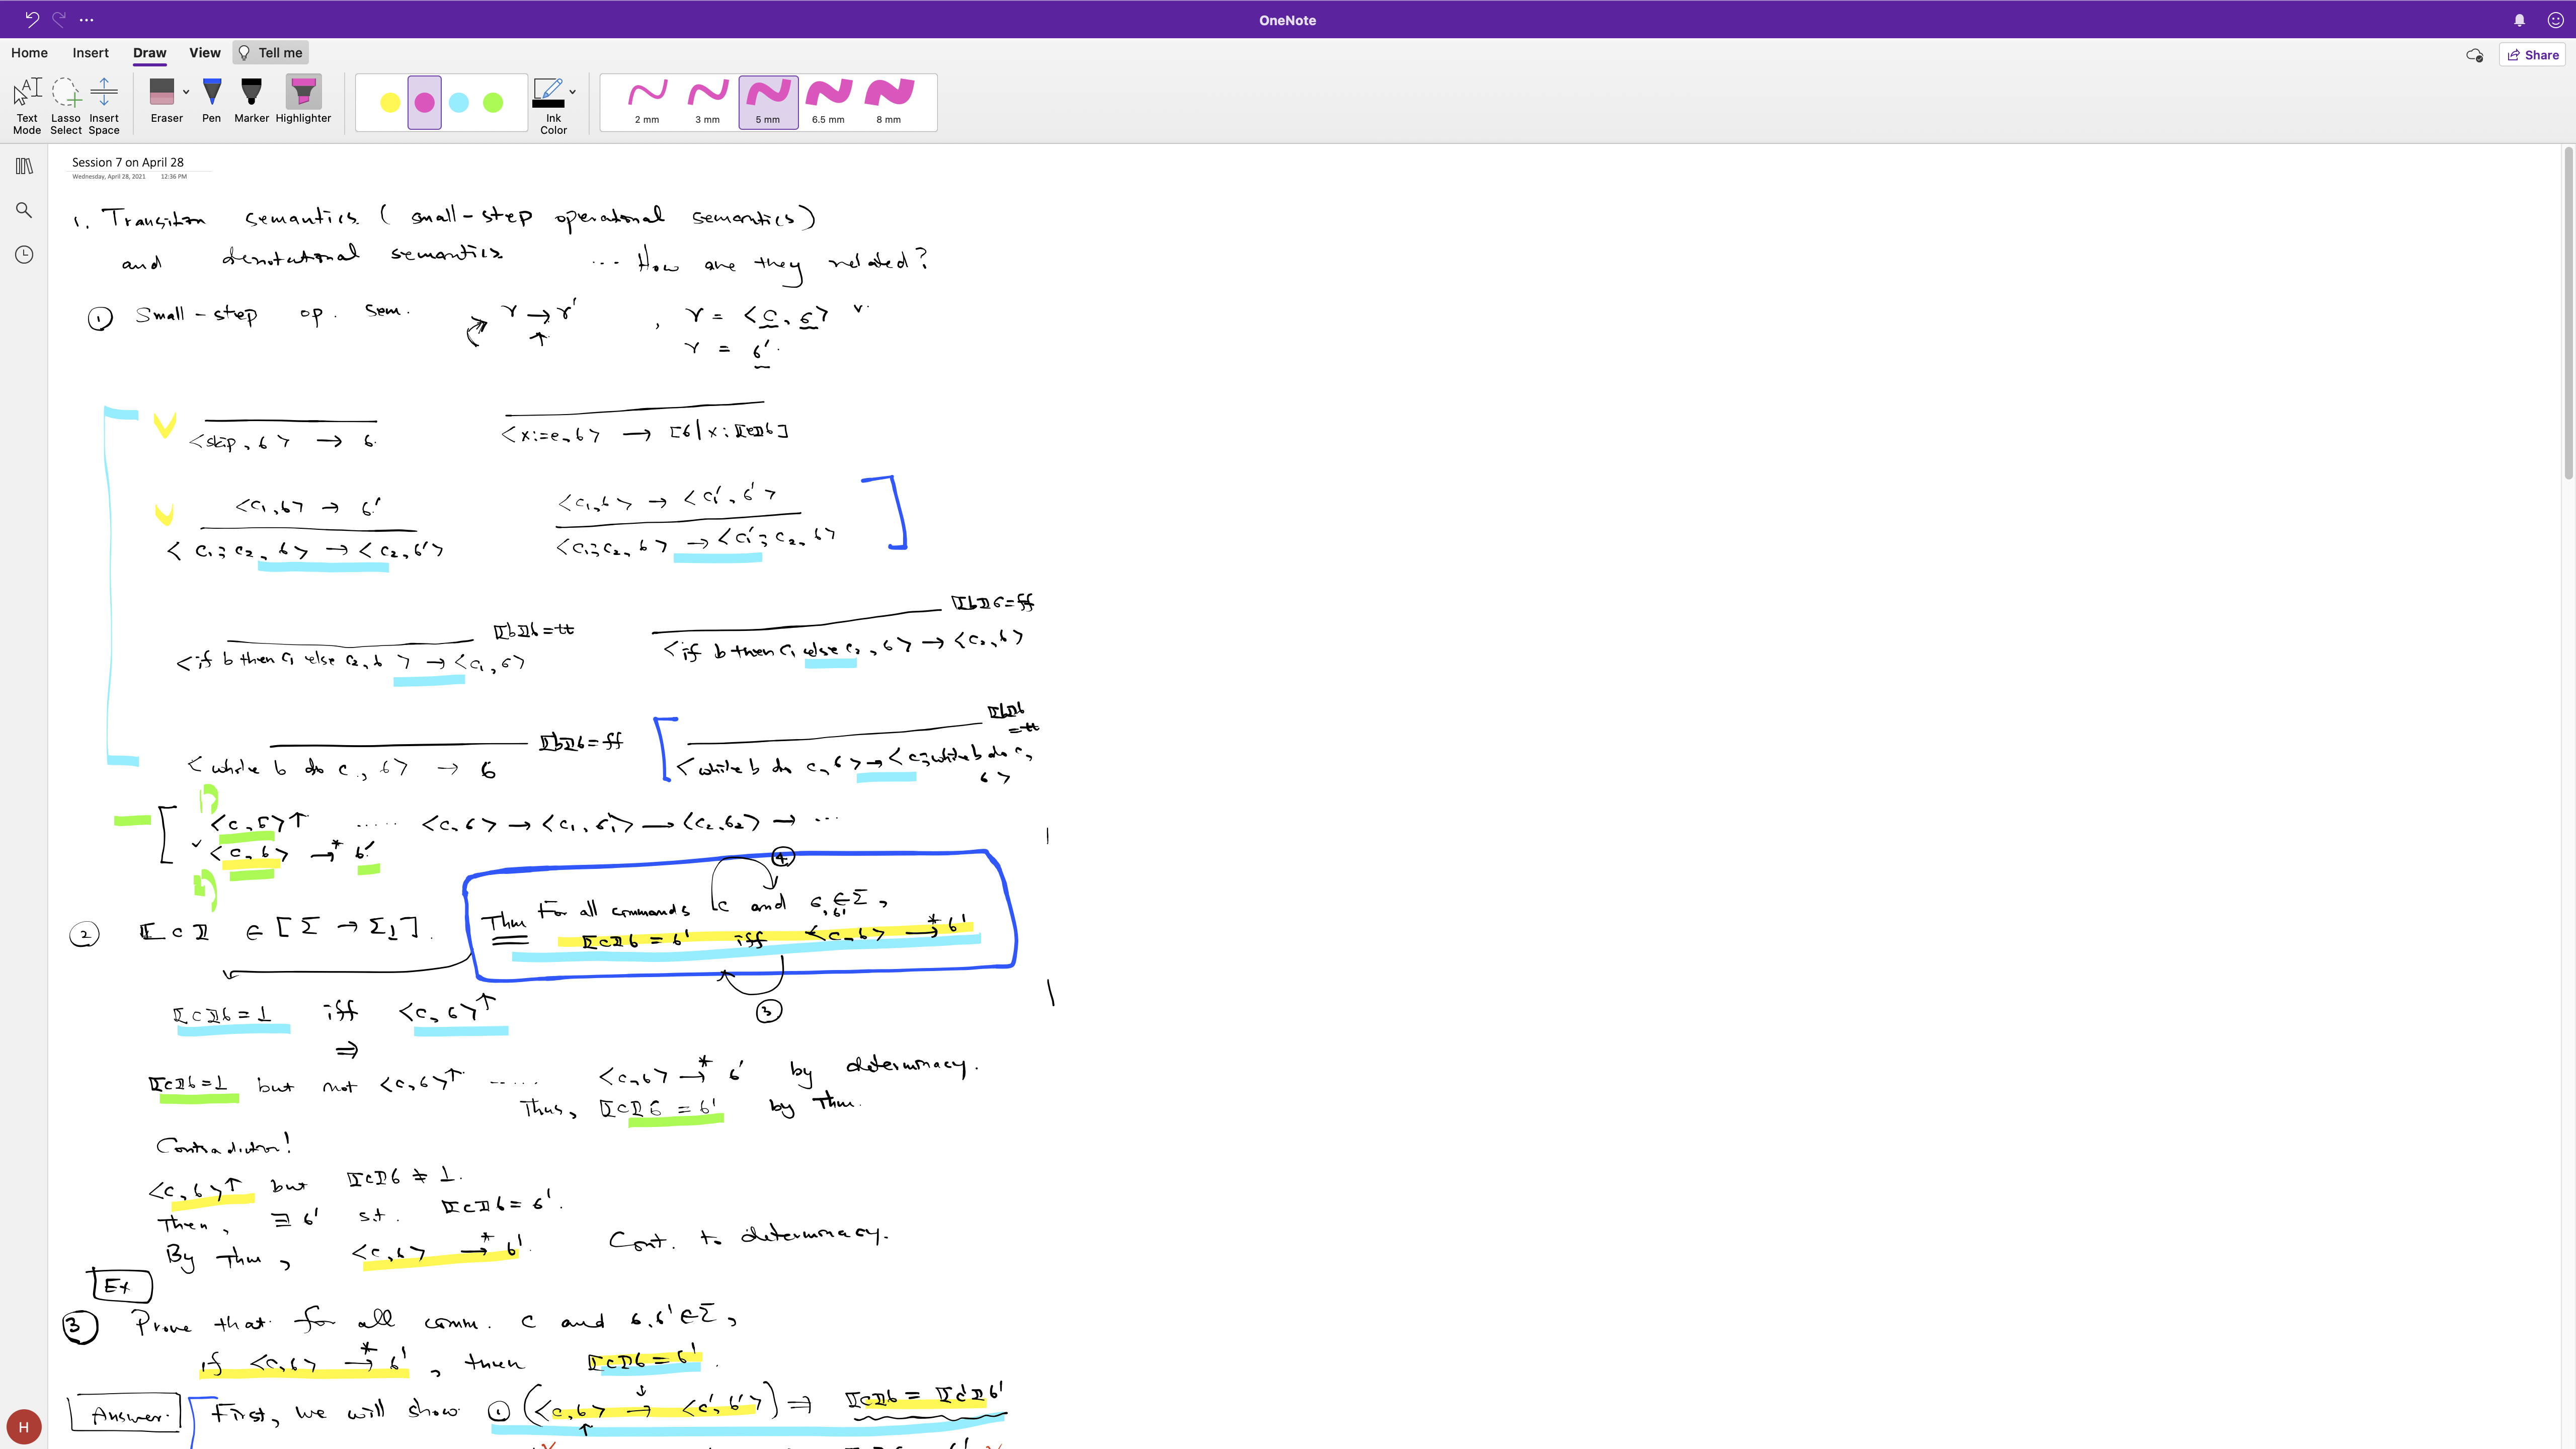 OneNote
Home Insert Draw View Tell me
Share
Text Mode
Lasso Select
Insert Space
Eraser
Pen
Marker
Highlighter
Ink Color
2 mm
3 mm
5 mm
6.5 mm
8 mm
Session 7 on April 28
Wednesday, April 28, 2021 12:36 PM
1. Transition semantics (small-step operational semantics)
and denotational semantics ... How are they related?
① Small-step op. sem. γ → γ' , γ = <c, σ>
γ = σ'
<skip, σ> → σ
<x:=e, σ> → [σ | x: ⟦e⟧σ]
<c₁, σ> → σ'
<c₁; c₂, σ> → <c₂, σ'>
<c₁, σ> → <c₁', σ'>
<c₁; c₂, σ> → <c₁'; c₂, σ>
⟦b⟧σ = tt
<if b then c₁ else c₂, σ> → <c₁, σ>
⟦b⟧σ = ff
<if b then c₁ else c₂, σ> → <c₂, σ>
⟦b⟧σ = ff
<while b do c, σ> → σ
⟦b⟧σ = tt
<while b do c, σ> → <c; while b do c, σ>
<c, σ>↑ ..... <c, σ> → <c₁, σ₁> → <c₂, σ₂> → ...
<c, σ> →* σ'
④
② ⟦c⟧ ∈ [Σ → Σ⊥].
Thm For all commands c and σ, σ' ∈ Σ,
⟦c⟧σ = σ' iff <c, σ> →* σ'
③
⟦c⟧σ = ⊥ iff <c, σ>↑
⇒
⟦c⟧σ = ⊥ but not <c, σ>↑ ..... <c, σ> →* σ' by determinacy.
Thus, ⟦c⟧σ = σ' by Thm.
Contradiction!
<c, σ>↑ but ⟦c⟧σ ≠ ⊥.
Then, ∃ σ' s.t. ⟦c⟧σ = σ'.
By Thm, <c, σ> →* σ'. Cont. to determinacy.
Ex
③ Prove that for all comm. c and σ, σ' ∈ Σ,
if <c, σ> →* σ', then ⟦c⟧σ = σ'.
Answer. First, we will show ① (<c, σ> → <c', σ'>) ⇒ ⟦c⟧σ = ⟦c'⟧σ'
H